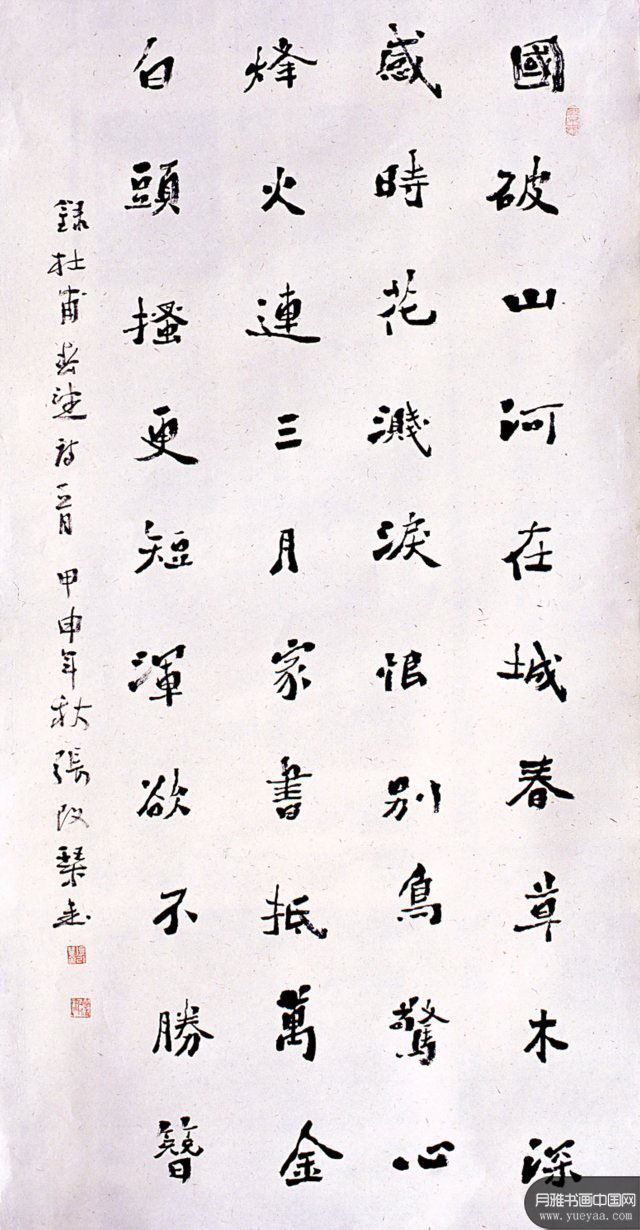 國破山河在城春草木深
感時花濺淚恨別鳥驚心
烽火連三月家書抵萬金
白頭搔更短渾欲不勝簪
錄杜甫春望詩 甲申年秋張改琴書
月雅书画中国网
www.yueyaa.com